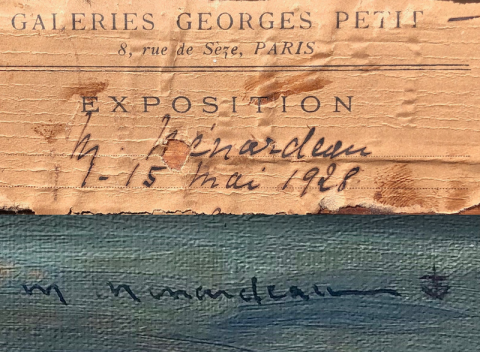 GALERIES GEORGES PETIT
8, rue de Sèze, PARIS
EXPOSITION
M. Ménardeau
1-15 mai 1928
M Menardeau